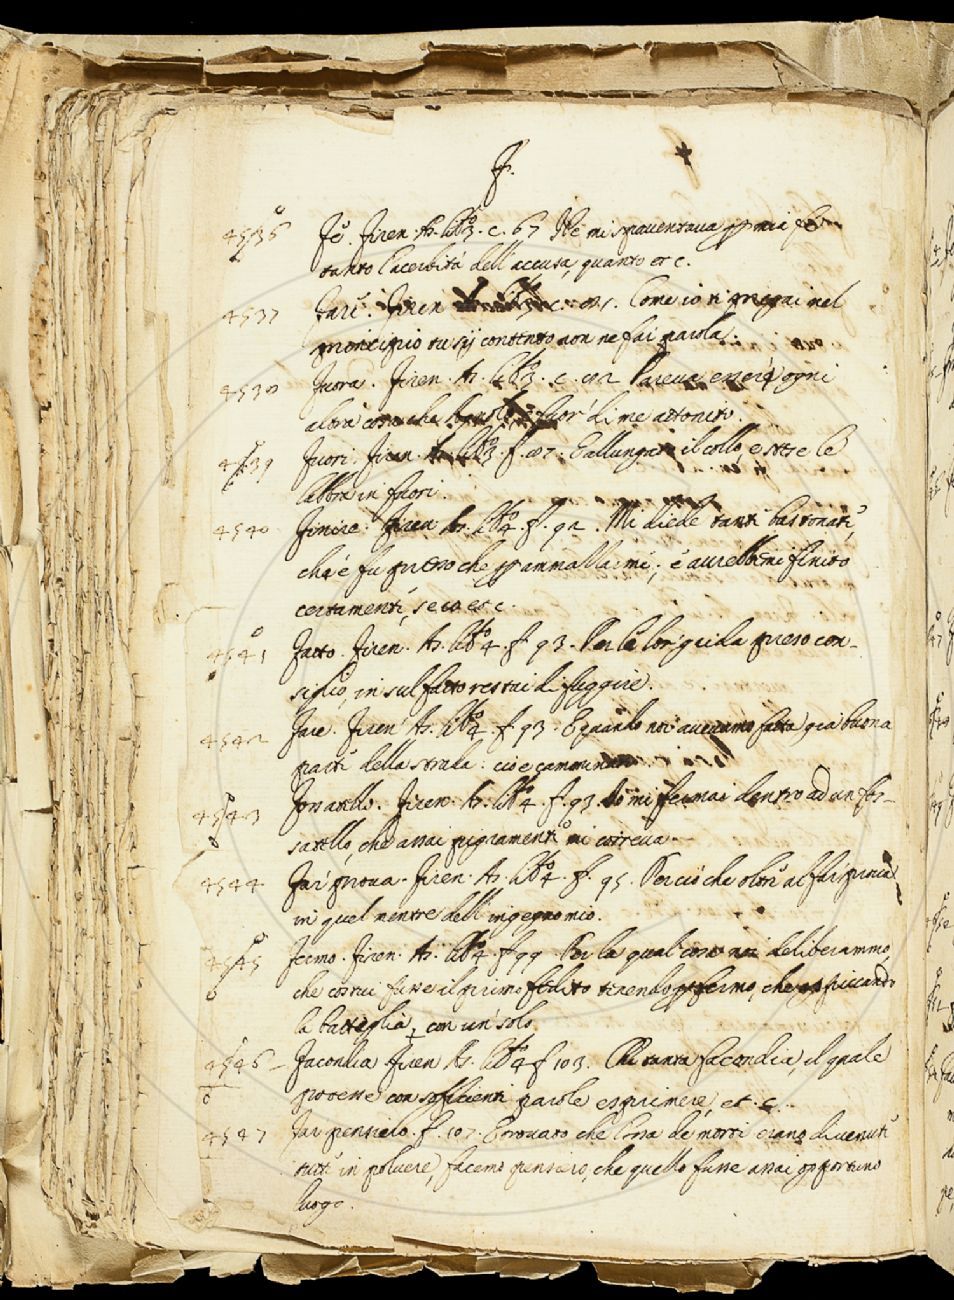 F.
4536 Fe. Firen. As. libo 3. c. 67 Nè mi spaventava per mia fe
tanto l'acerbità dell'accusa, quanto et c.
4537 Fare. Firen Come io ti pregai nel
principio tu sij contento non ne far parola.
4538 Fuora. Firen. As. libo 3. c. Pareva essere ogni
altra cosa che fuor di me attonito.
4539 Fuori. Firen. As. libo 3. f. E allungare il collo, e
labbra in fuori.
4540 Finire. Firen As. libo 4. f. 92. Mi diede tanti bastonate,
che fu presso che per ammazzarmi; e avrebbemi finito
certamente, se et c.
4541 Fatto. Firen. As. libo 4. f. 93. Per la lor guida preso con-
siglio, in sul fatto restai di fuggire.
4542 Fare. Firen As. libo 4. f. 93. E quando noi avevamo fatta già buona
parte della strada. cioè camminato
4543 Fossatello. Firen. As. libo 4. f. 93. Io mi fermai dentro ad un fos-
satello, che assai pigramente vi correva.
4544 Far prova. Firen. As. libo 4. f. 95. Perciò che oltre al far
in quel mentre dell'ingegno mio.
4545 Fermo. Firen. As. libo 4. f. 99 Per la qual cosa noi deliberammo,
che costui fusse il primo tenendo per fermo, che appiccando
la battaglia con un solo.
4546 Facondia Firen As. libo 4 f 103. Chi tanta facondia, il quale
potesse con sofficienti parole esprimere, et. c.
4547 Far pensiero. f. 107. E trovato che l'ossa de morti erano divenute
tutte in polvere, facemo pensiero, che quello fusse assai opportuno
luogo.